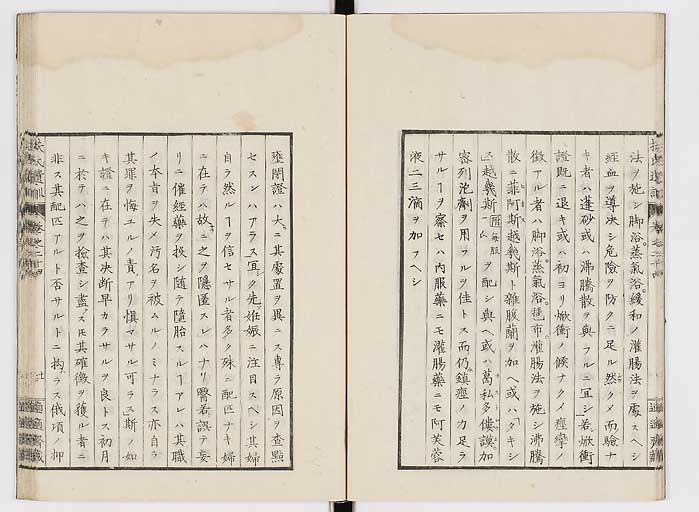 法ヲ施シ脚浴蒸氣浴緩和ノ灌腸法ヲ處スヘシ
經血ヲ導决シ危險ヲ防クニ足ル然𪜈而驗ナ
キ者ハ蓬砂或ハ沸騰散ヲ與フルニ宜シ若㷔衝
證既ニ退キ或ハ初ヨリ㷔衝ノ候ナク𪜈痙攣ノ
徴アル者ハ脚浴蒸氣浴琶布灌腸法ヲ施シ沸騰
散ニ菲阿斯越幾斯ト雜腹蘭ヲ加ヘ或ハタキシ
ュス越幾斯一ムヲ配シ與ヘ或ハ葛私多僂謨加
密列泡劑ヲ用フルヲ佳トス而仍鎮痙ノ力足ラ
サルヿヲ察セハ内服藥ニモ灌腸藥ニモ阿芙蓉
液二三滴ヲ加フヘシ
壅閉證ハ大ニ其處置ヲ異ニス專ラ原因ヲ查㸃
セスンハアラス宜ク先妊娠ニ注目スヘシ其婦
自ラ然ルヿヲ信セサル者多ク殊ニ配匹ナキ婦
ニ在テハ故ニ之ヲ隱匿スレハナリ醫若誤テ妄
リニ催經藥ヲ投シ隨テ墮胎スルヿアレハ其職
ノ本旨ヲ失メ汚名ヲ被ムルノミナラス亦自ラ
其罪ヲ悔ユルノ責アリ愼マサル可ラス斯ノ如
キ證ニ在テハ其决斷早カラサルヲ良トス初月
ニ於テハ之ヲ撿查シ盡スモ其確徴ヲ獲ル者ニ
非ス其配匹アルト否サルトニ拘ラス俄頃ノ抑